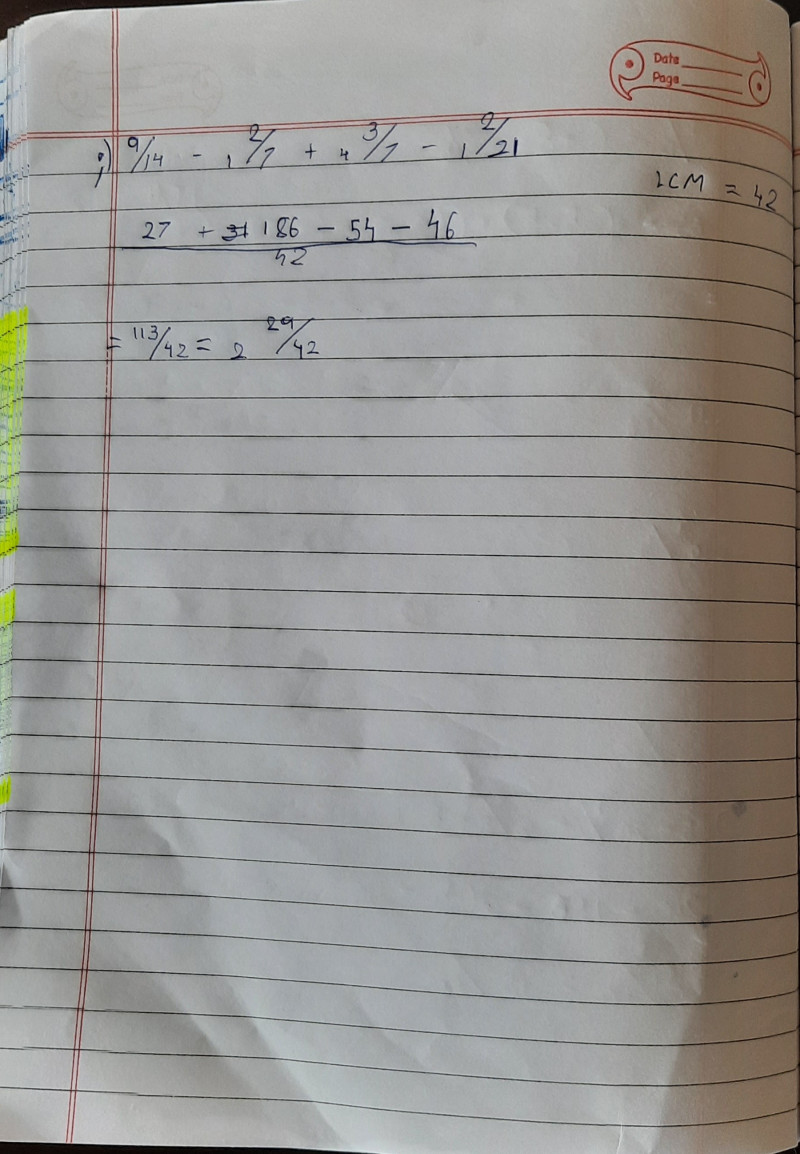 Date
Page
i) 9/14 - 1 2/7 + 4 3/7 - 1 2/21
LCM = 42
27 + 186 - 54 - 46
42
= 113/42 = 2 29/42